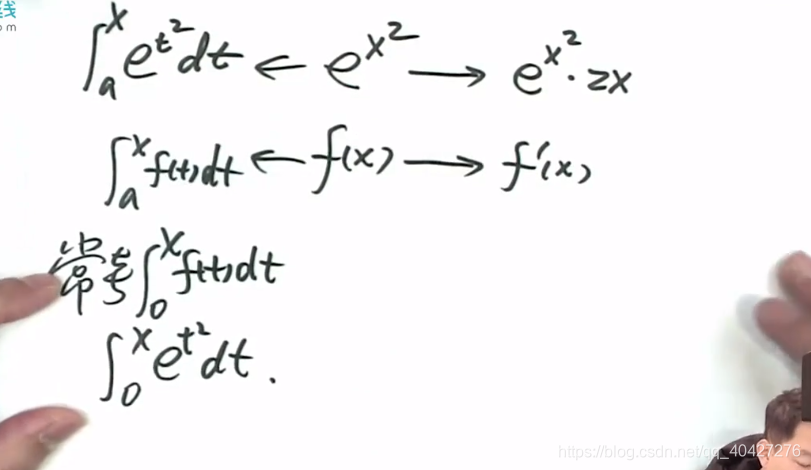 线
om
∫ₐˣ e^{t²}dt ← e^{x²} → e^{x²}·2x
∫ₐˣ f(t)dt ← f(x) → f'(x)
常考 ∫₀ˣ f(t)dt
∫₀ˣ e^{t²}dt.
https://blog.csdn.net/qq_40427276